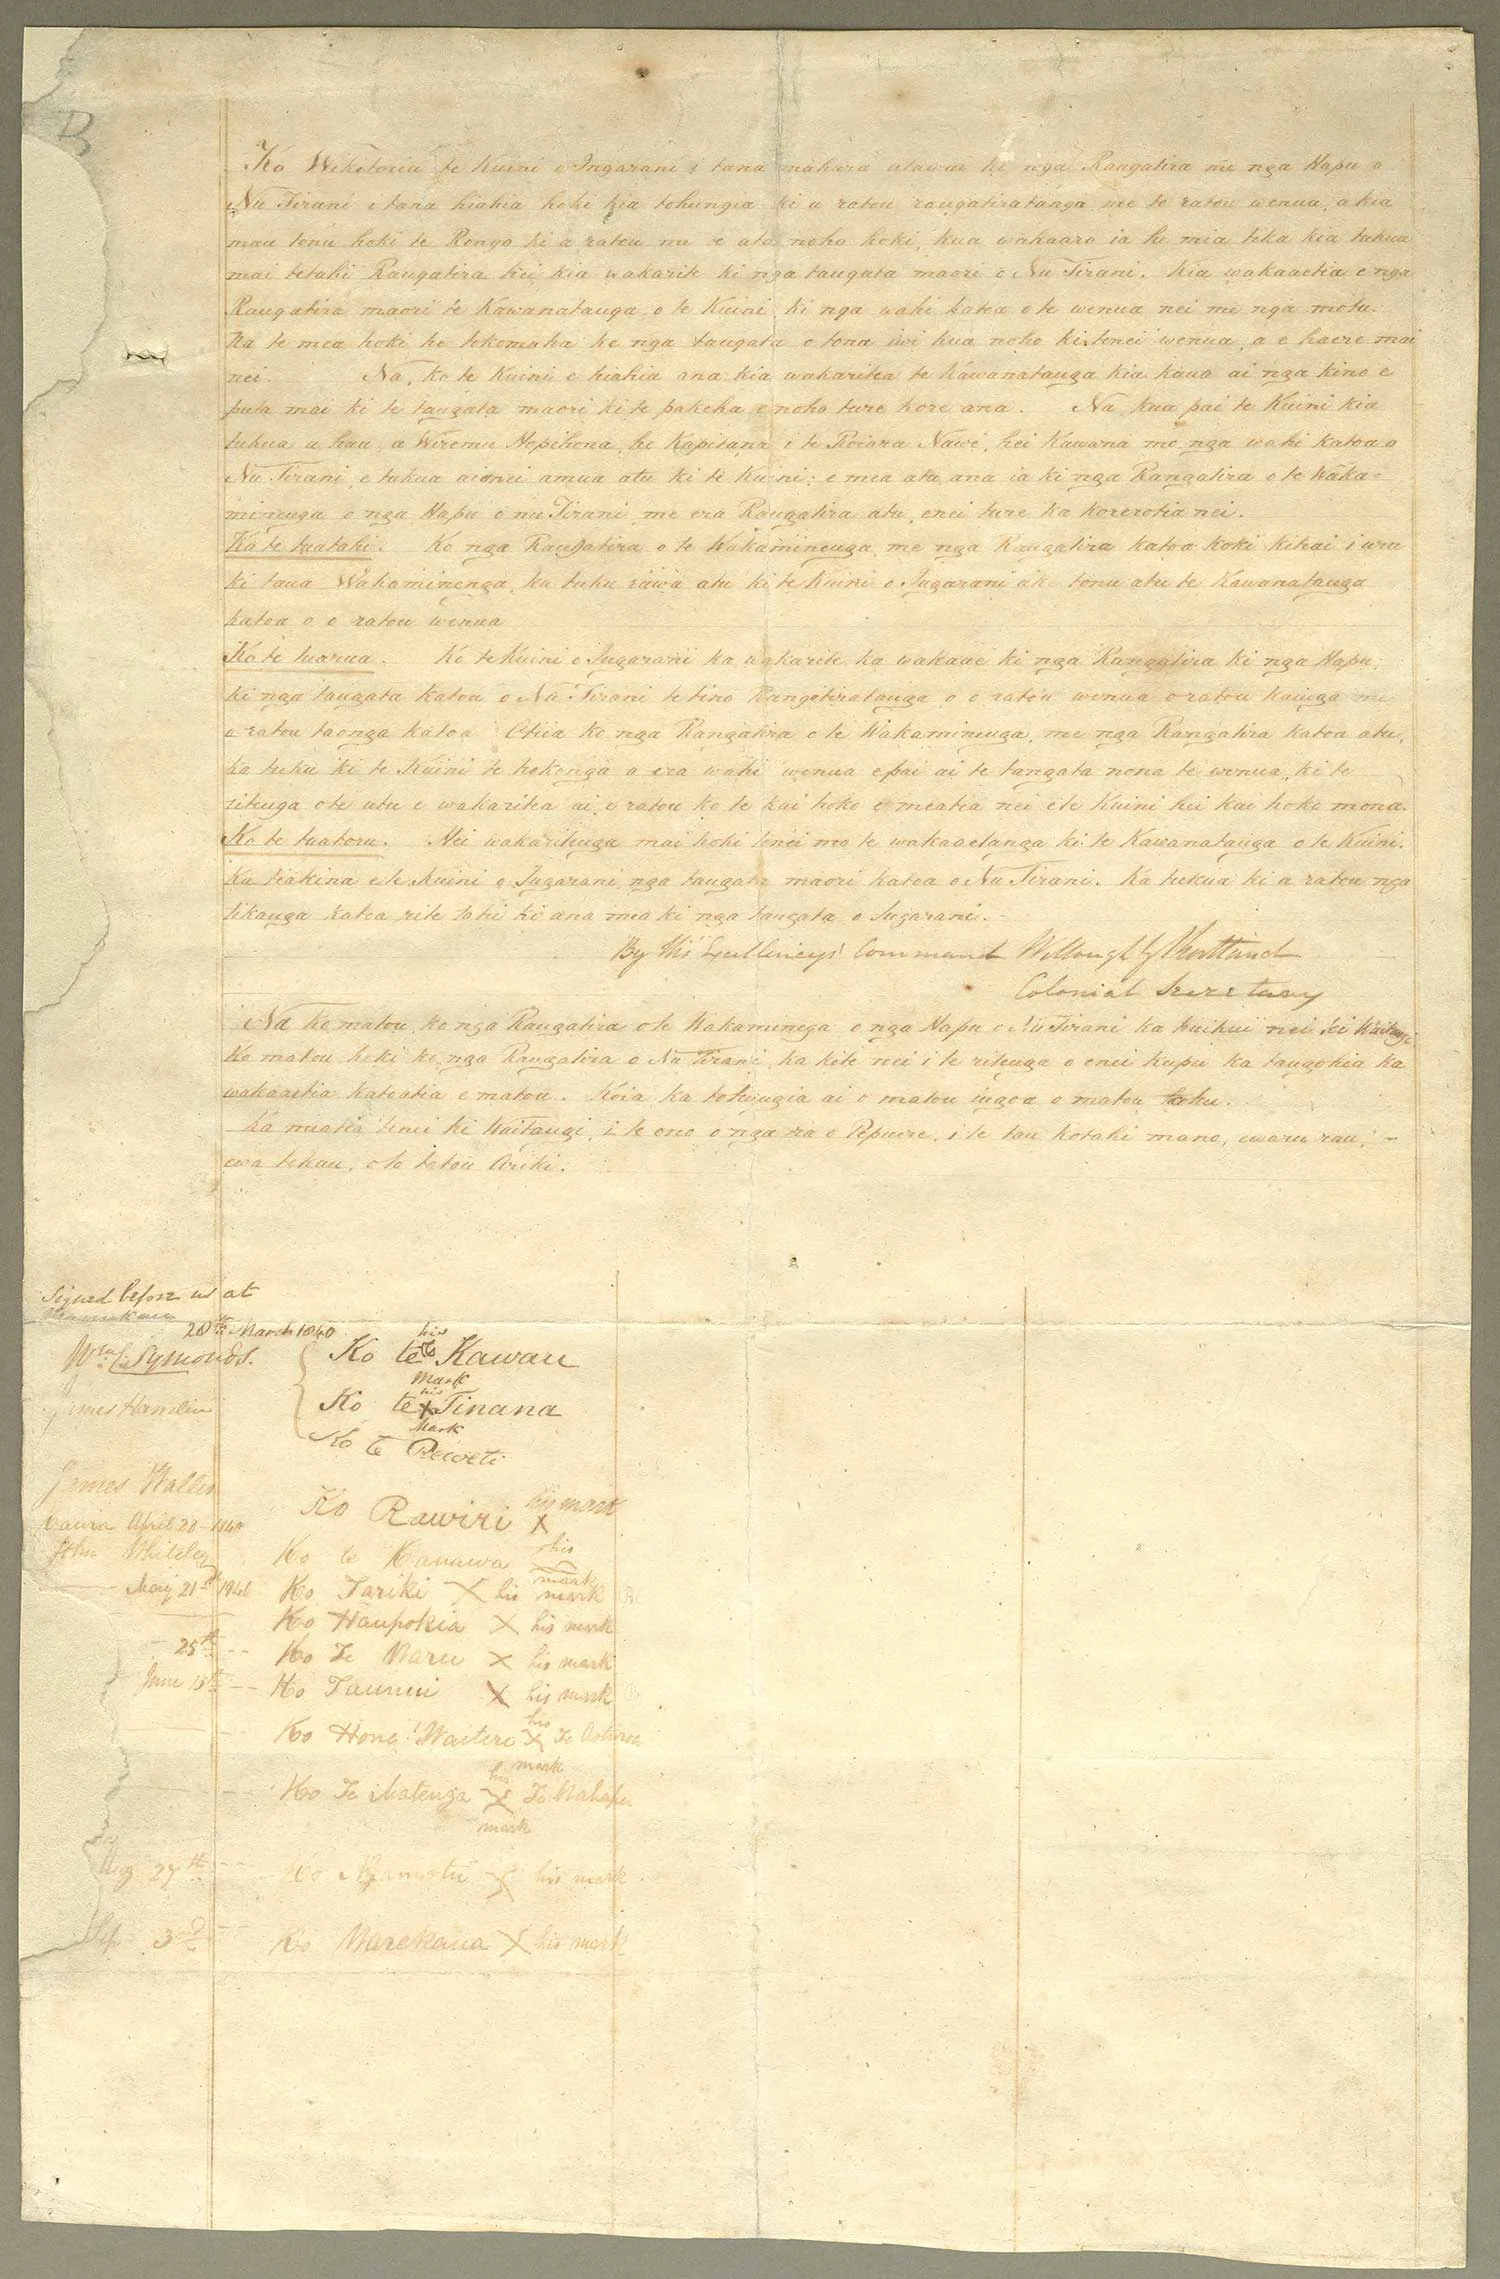 B
Ko Wikitoria te Kuini o Ingarani i tana mahara atawai ki nga Rangatira me nga Hapu o
Nu Tirani i tana hiahia hoki kia tohungia ki a ratou rangatiratanga, me to ratou wenua, a kia
mau tonu hoki te Rongo ki a ratou me e ata noho hoki, kua wakaaro ia he mia tika kia tukua
mai tetahi Rangatira hei kia wakarite ki nga tangata maori o Nu Tirani. Kia wakaaetia e nga
Rangatira maori te Kawanatanga o te Kuini, ki nga wahi katoa o te wenua nei me nga motu.
Na te mea hoki he tokomaha ke nga tangata o tona iwi kua noho ki tenei wenua, a e haere mai
nei. Na, ko te Kuini e hiahia ana kia wakaritea te Kawanatanga kia kaua ai nga kino e
puta mai ki te tangata maori ki te pakeha e noho ture kore ana. Na, kua pai te Kuini kia
tukua a hau, a Wiremu Hopihona, he Kapitana i te Roiara Nawi, hei Kawana mo nga wahi katoa o
Nu Tirani, e tukua aionei amua atu ki te Kuini; e mea atu ana ia ki nga Rangatira o te Waka=
minenga o nga Hapu o nu Tirani, me era Rangatira atu, enei ture ka korerotia nei.
Ko te tuatahi. Ko nga Rangatira o te Wakaminenga, me nga Rangatira katoa hoki kihai i uru
ki taua Wakaminenga, ka tuku rawa atu ki te Kuini o Ingarani ake tonu atu te Kawanatanga
katoa o o ratou wenua
Ko te tuarua. Ko te Kuini o Ingarani ka wakarite ka wakaae ki nga Rangatira ki nga Hapu;
ki nga tangata katoa o Nu Tirani te tino Rangatiratanga o o ratou wenua o ratou kainga me
o ratou taonga katoa Otiia ko nga Rangatira o te Wakaminenga, me nga Rangatira katoa atu,
ka tuku ki te Kuini te hokonga o era wahi wenua e pai ai te tangata nona te wenua, ki te
ritenga o te utu e wakaritea ai e ratou ko te kai hoko e meatia nei e te Kuini hei kai hoko mona.
Ko te tuatoru. Hei wakaritenga mai hoki tenei mo te wakaaetanga ki te Kawanatanga o te Kuini.
Ka tiakina e te Kuini o Ingarani nga tangata maori katoa o Nu Tirani. Ka tukua ki a ratou nga
tikanga katoa rite tahi ki ana mea ki nga tangata o Ingarani.
By His Excellencys' Command Willoughby Shortland
Colonial Secretary
Na ko matou, ko nga Rangatira o te Wakaminenga o nga Hapu o Nu Tirani ka huihui nei ki Waitangi
Ko matou hoki ko nga Rangatira o Nu Tirani, ka kite nei i te ritenga o enei kupu ka tangohia ka
wakaaetia katoatia e matou. Koia ka tohungia ai o matou ingoa o matou tohu.
Ka meatia tenei ki Waitangi, i te ono o nga ra o Pepuere, i te tau kotahi mano, ewaru rau,
ewa tekau, o to tatou Ariki.
Signed before us at
20th March 1840
Wm C. Symonds.
James Hamlin
his
Ko te Kawau
Mark
his
Ko te X Tinana
Mark
Ko te Reweti
James Wallis
April 28 - 1840
Ko Rawiri his mark X
John Whiteley
Ko te Kanawa his
mark
May 21st 1840
Ko Tariki X his mark
Ko Haupokia X his mark
25th
Ko Te Waru X his mark
June 15th
Ko Taunui X his mark
Ko Hone Waitere his X mark Te Aoturoa
Ko Te Matenga his X mark Te Wahapu
Aug 27th
Ko Ngamotu X his mark
Sep 3rd
Ko Warekaua X his mark